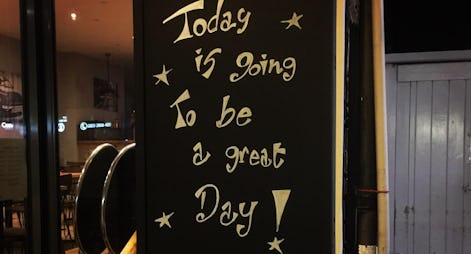 Today
is going
To be
a great
Day!